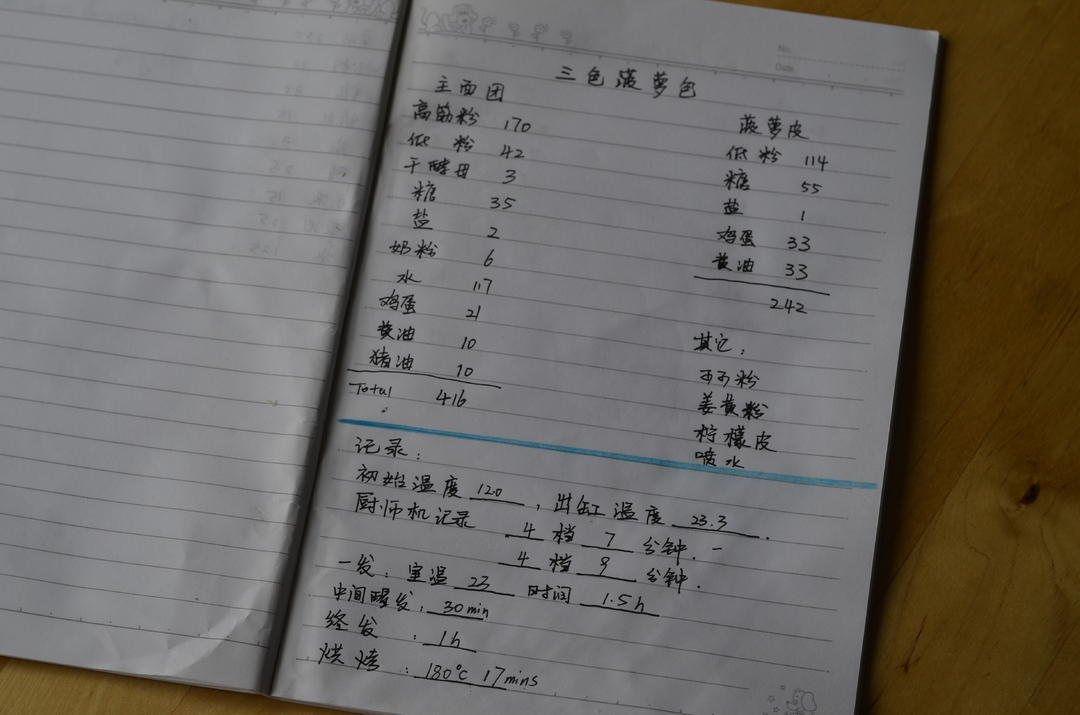 No.
Date
三色菠萝包
主面团
高筋粉 170
低粉 42
干酵母 3
糖 35
盐 2
奶粉 6
水 117
鸡蛋 21
黄油 10
猪油 10
Total 416
菠萝皮
低粉 114
糖 55
盐 1
鸡蛋 33
黄油 33
242
其它：
可可粉
姜黄粉
柠檬皮
喷水
记录：
初始温度 12.0 ，出缸温度 23.3 .
厨师机记录 4 档 7 分钟.
4 档 9 分钟.
一发：室温 23 时间 1.5h
中间醒发：30min
终发：1h
烘烤：180℃ 17mins